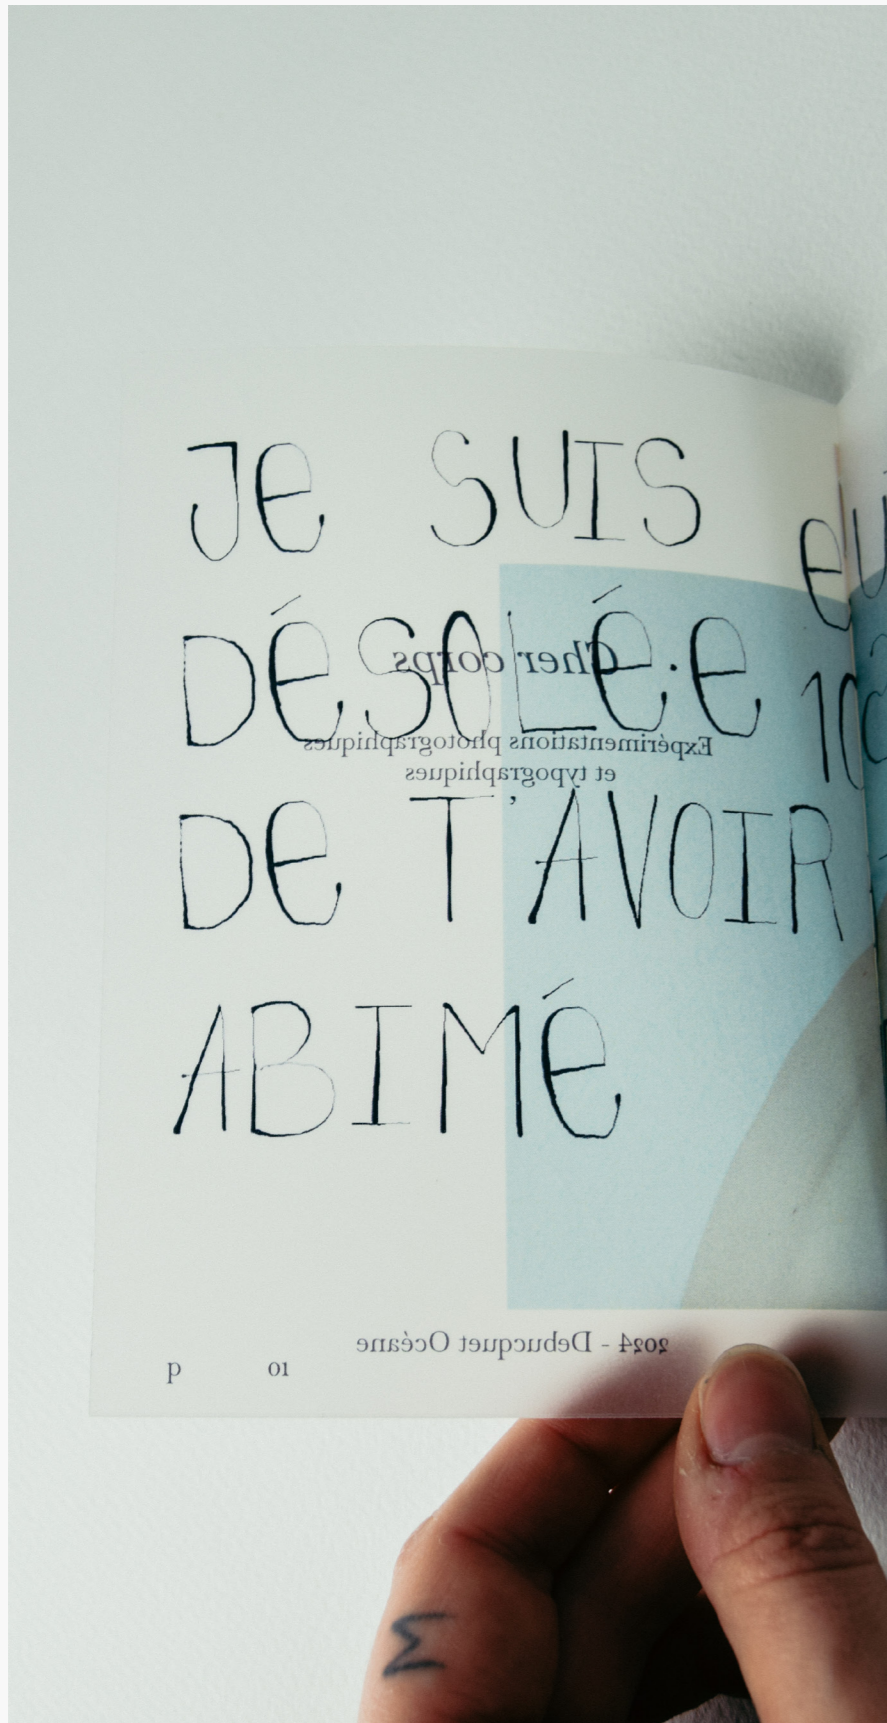 Je SUIS
DÉSOLÉ·e
De T'AVOIR
ABIMÉ
Cher corps
Expérimentations photographiques
et typographiques
2024 - Debucquet Océane
10